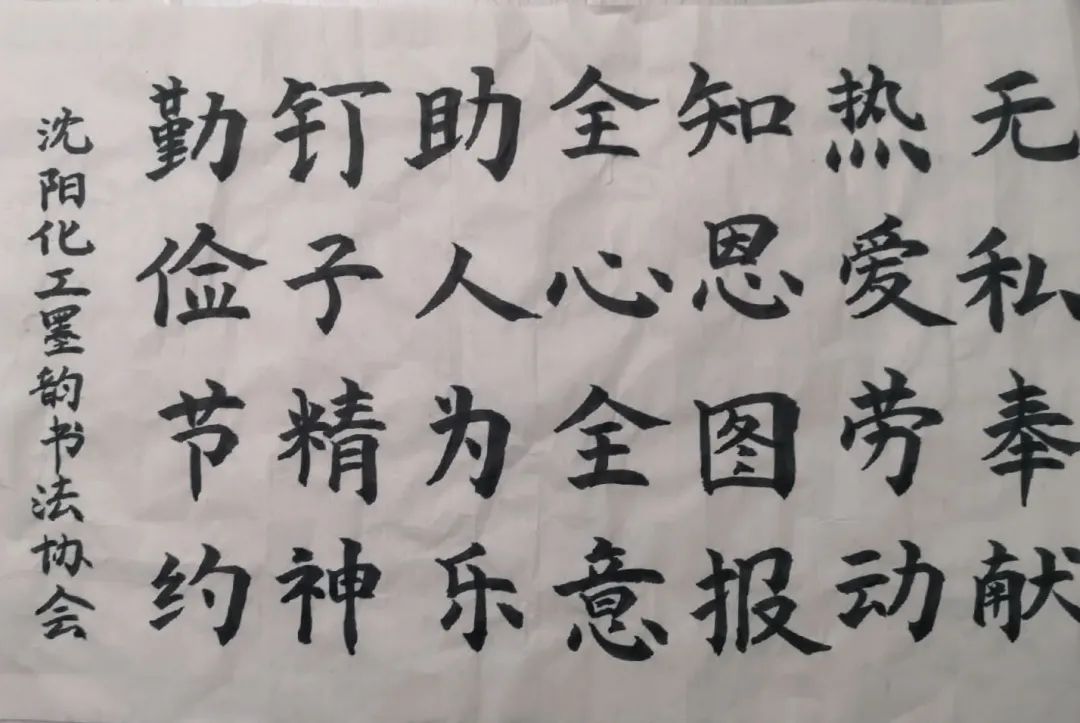 无私奉献
热爱劳动
知恩图报
全心全意
助人为乐
钉子精神
勤俭节约
沈阳化工墨韵书法协会